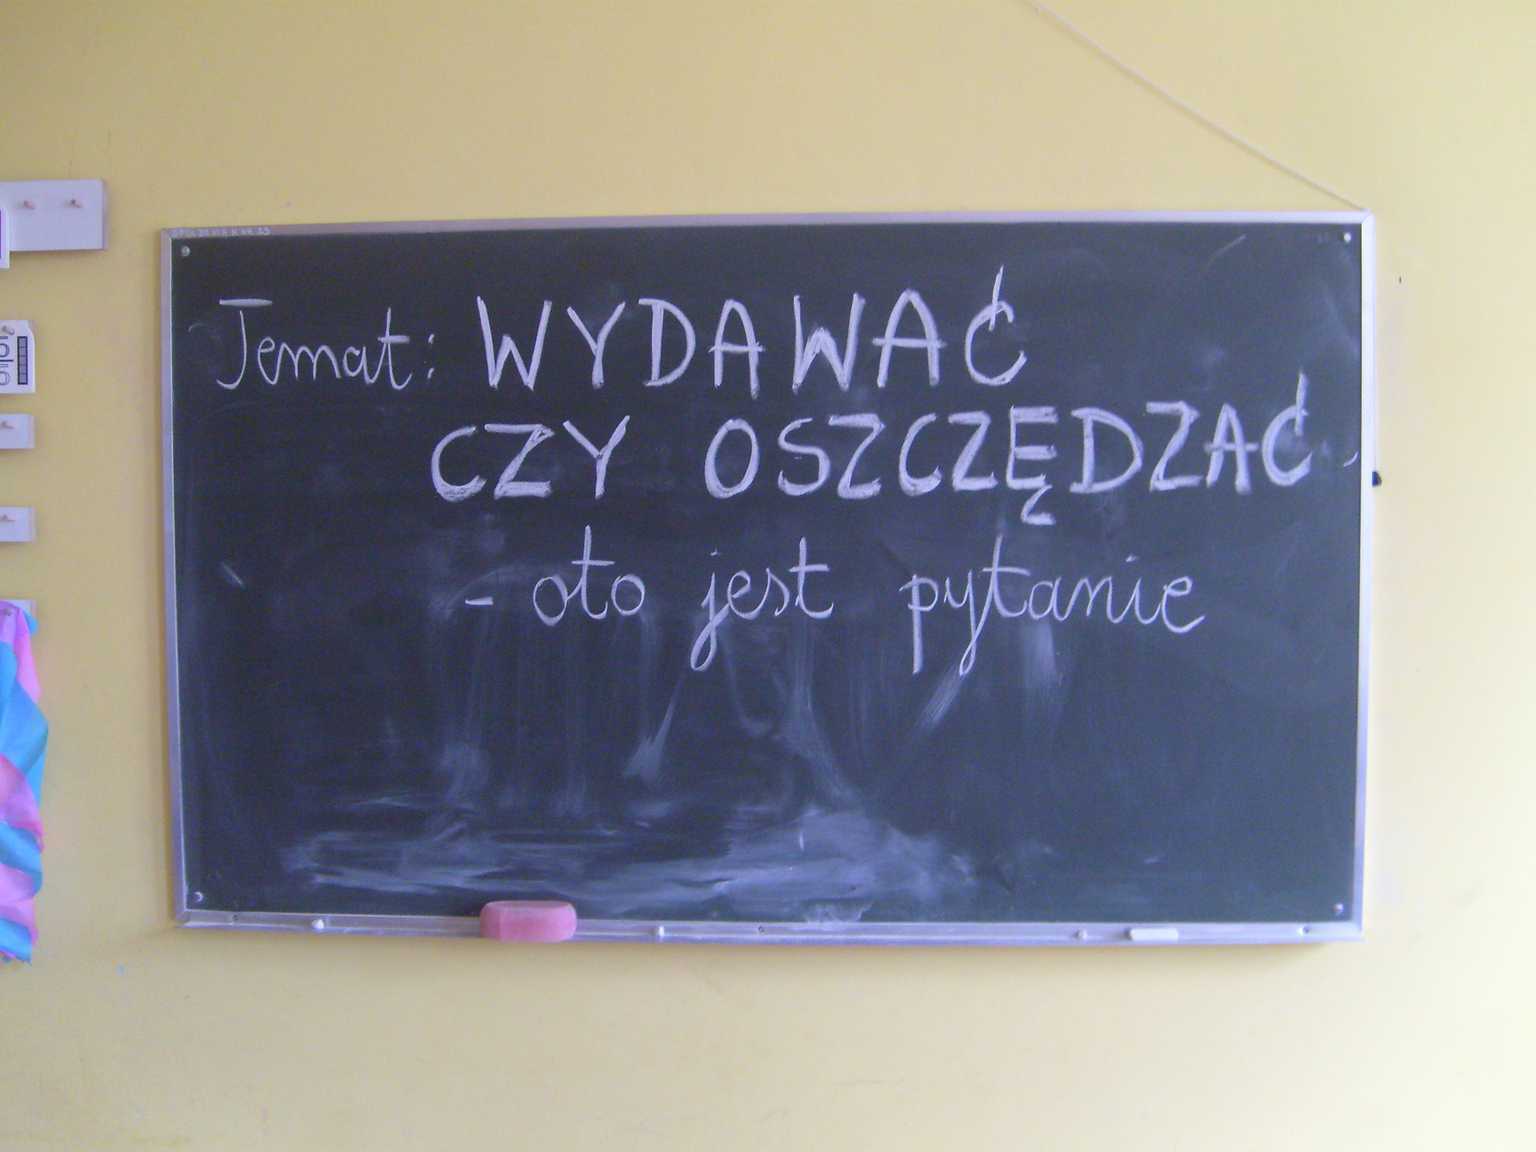 Temat: WYDAWAĆ
CZY OSZCZĘDZAĆ
- oto jest pytanie